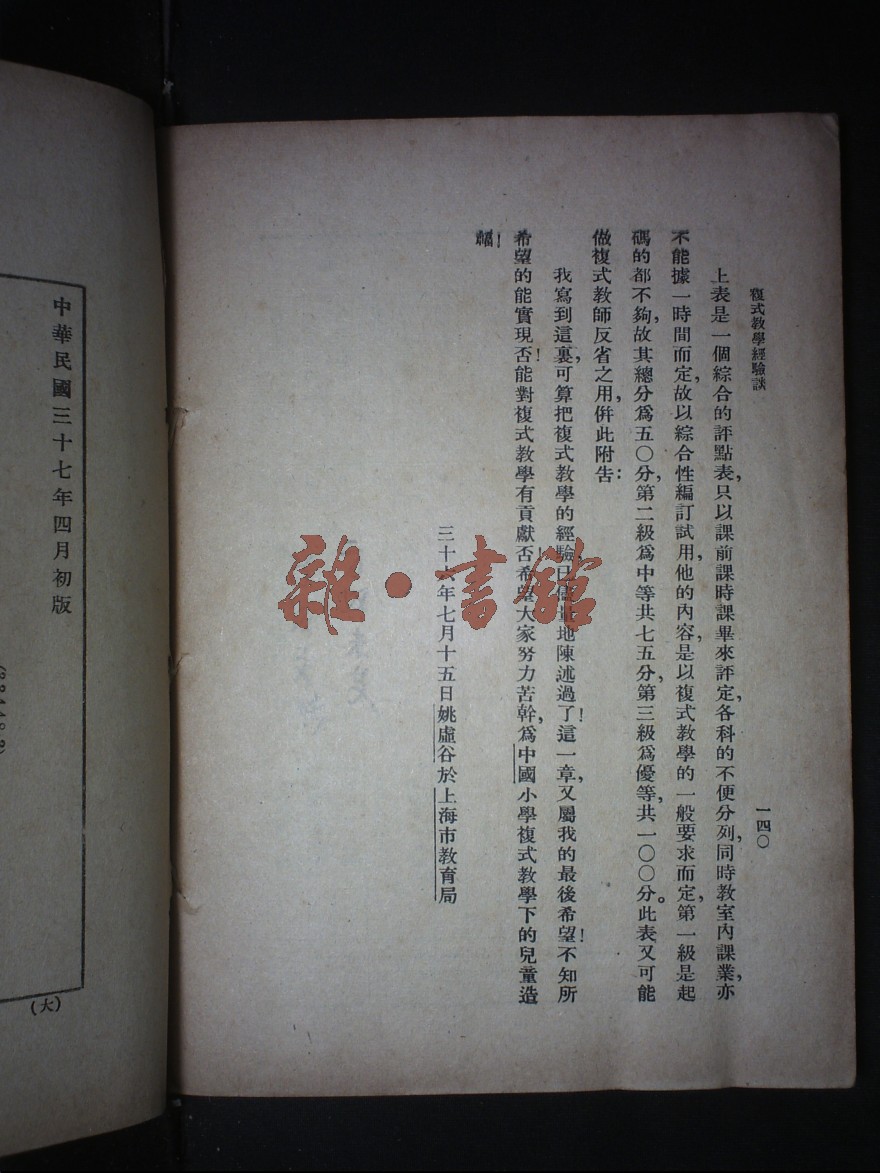 複式教學經驗談
一四〇
上表是一個綜合的評點表，只以課前課時課畢來評定，各科的不便分列，同時教室內課業，亦
不能據一時間而定，故以綜合性編訂試用，他的內容，是以複式教學的一般要求而定，第一級是起
碼的都不夠，故其總分爲五〇分，第二級爲中等共七五分，第三級爲優等，共一〇〇分。此表又可能
做複式教師反省之用，併此附告：
我寫到這裏，可算把複式教學的經驗，已儘量地陳述過了！這一章，又屬我的最後希望！不知所
希望的能實現否！能對複式教學有貢獻否！希望大家努力苦幹，爲中國小學複式教學下的兒童造
福！
三十六年七月十五日姚虛谷於上海市教育局
中華民國三十七年四月初版
(大)
雜·書館